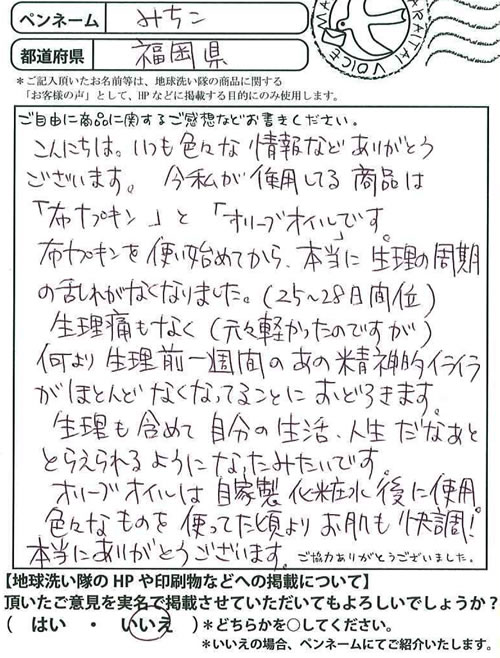 ペンネーム みちこ
都道府県 福岡県
＊ご記入頂いたお名前等は、地球洗い隊の商品に関する
「お客様の声」として、HPなどに掲載する目的にのみ使用します。
ご自由に商品に関するご感想などお書きください。
こんにちは。いつも色々な情報などありがとう
ございます。 今私が使用してる商品は
「布ナプキン」と「オリーブオイル」です。
布ナプキンを使い始めてから、本当に生理の周期
の乱れがなくなりました。(25～28日間位)
生理痛もなく(元々軽かったのですが)
何より生理前一週間のあの精神的イライラ
がほとんどなくなってることにおどろきます。
生理も含めて自分の生活、人生だなあと
とらえられるようになったみたいです。
オリーブオイルは自家製化粧水後に使用。
色々なものを使ってた頃よりお肌も快調!
本当にありがとうございます。 ご協力ありがとうございました。
【地球洗い隊のHPや印刷物などへの掲載について】
頂いたご意見を実名で掲載させていただいてもよろしいでしょうか?
( はい ・ いいえ )＊どちらかを○してください。
＊いいえの場合、ペンネームにてご紹介いたします。